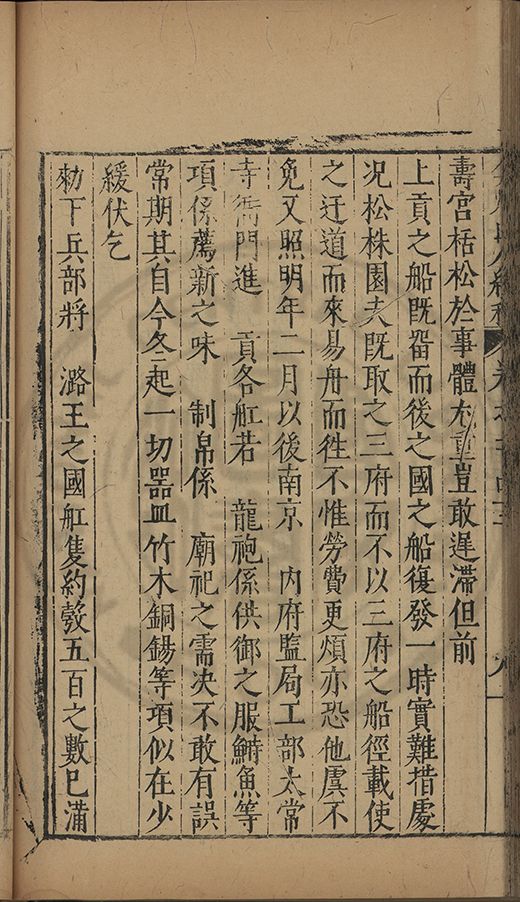 壽宮栝松於事體尤重豈敢遲滯但前
上貢之船既畱而後之國之船復發一時實難措處
况松株園夫既取之三府而不以三府之船徑載使
之迂道而來易舟而徃不惟勞費更煩亦恐他虞不
免又照明年二月以後南京 内府監局工部太常
寺衙門進 貢各舡若 龍袍係供御之服鰣魚等
項係薦新之味 制帛係 廟祀之需决不敢有誤
常期其自今冬起一切器皿竹木銅錫等項似在少
緩伏乞
勑下兵部將 潞王之國舡隻約彀五百之數已滿